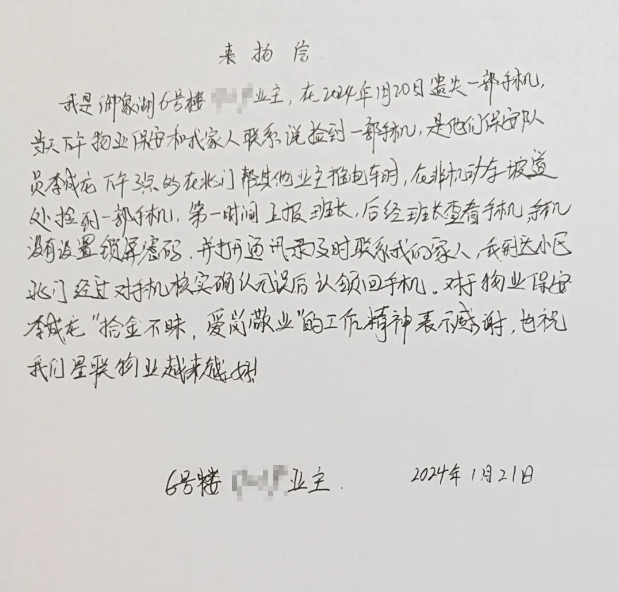 表扬信
我是御象湖6号楼业主，在2024年1月20日遗失一部手机，
当天下午物业保安和我家人联系说捡到一部手机，是他们保安队
员李成龙下午3点的在北门帮其他业主推电车时，在非机动车坡道
处捡到一部手机，第一时间上报班长，后经班长查看手机，手机
没有设置锁屏密码，并打开通讯录及时联系我的家人，我到达小区
北门经过对手机核实确认无误后认领回手机。对于物业保安
李成龙“拾金不昧，爱岗敬业”的工作精神表示感谢，也祝
我们星联物业越来越好！
6号楼业主. 2024年1月21日